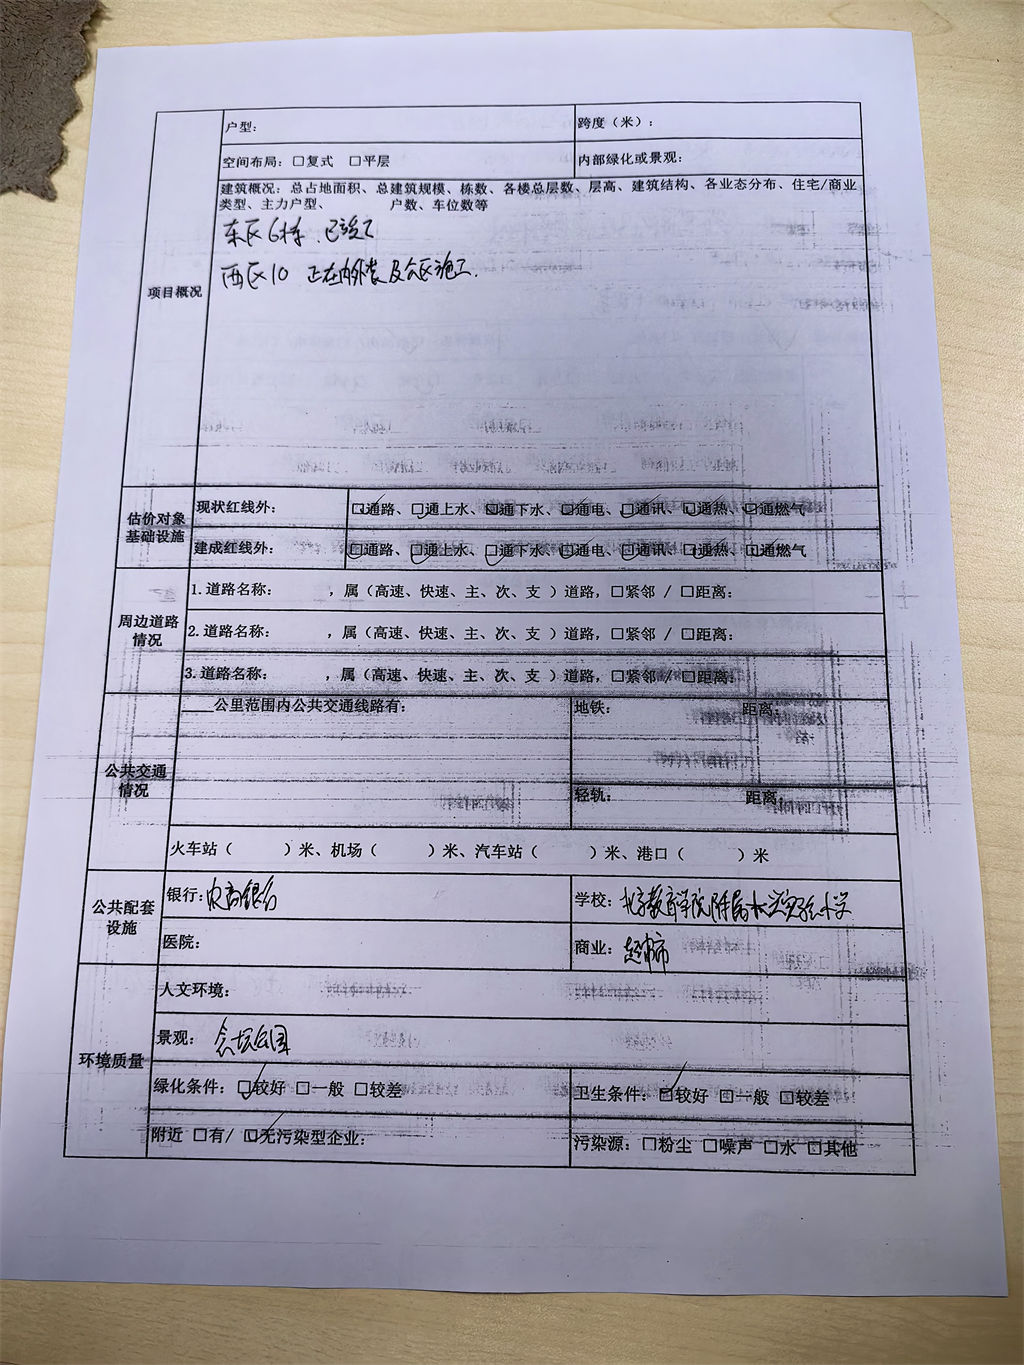 户型：
跨度（米）：
空间布局：□复式 □平层
内部绿化或景观：
项目概况
建筑概况：总占地面积、总建筑规模、栋数、各楼总层数、层高、建筑结构、各业态分布、住宅/商业
类型、主力户型、 户数、车位数等
东区6栋、已竣工
西区10 正在内外装及公区施工.
估价对象
基础设施
现状红线外：
☑通路、☑通上水、☑通下水、☑通电、☑通讯、☑通热、☑通燃气
建成红线外：
☑通路、☑通上水、☑通下水、☑通电、☑通讯、☑通热、☑通燃气
周边道路
情况
1.道路名称： ，属（高速、快速、主、次、支 ）道路，□紧邻 / □距离：
2.道路名称： ，属（高速、快速、主、次、支 ）道路，□紧邻 / □距离：
3.道路名称： ，属（高速、快速、主、次、支 ）道路，□紧邻 / □距离：
公共交通
情况
____公里范围内公共交通线路有：
地铁： 距离：
轻轨： 距离：
火车站（ ）米、机场（ ）米、汽车站（ ）米、港口（ ）米
公共配套
设施
银行：农商银行
学校：北京教育学院附属大兴实验小学
医院：
商业：超市
环境质量
人文环境：
景观：念坛公园
绿化条件：☑较好 □一般 □较差
卫生条件：☑较好 □一般 □较差
附近 □有/ ☑无污染型企业：
污染源：□粉尘 □噪声 □水 □其他